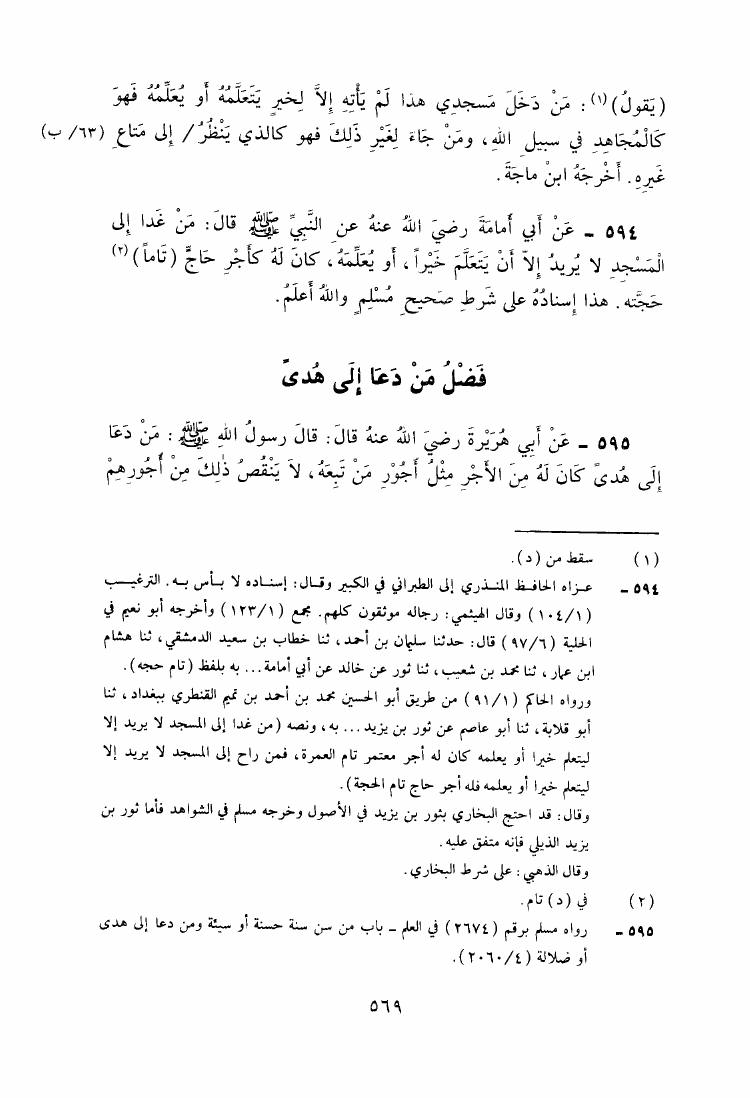 (يَقولُ)(١): مَنْ دَخَلَ مَسجدِي هذا لَمْ يَأْتِهِ إلاَّ لِخيرٍ يَتَعَلَّمُهُ أو يُعَلِّمُهُ فَهوَ
كَالْمُجَاهِدِ في سبيلِ اللهِ، ومَنْ جَاءَ لِغَيْرِ ذَلِكَ فهو كالذي يَنْظُرُ/ إلى مَتاعِ (٦٣/ ب)
غَيرِهِ. أخْرجَهُ ابنُ ماجَةَ.
٥٩٤ ـ عَنْ أبي أُمامَةَ رضيَ اللهُ عنهُ عنِ النَّبيِّ ﷺ قالَ: مَنْ غَدا إلى
الْمَسْجدِ لا يُريدُ إلاّ أنْ يَتَعَلَّمَ خَيْراً، أو يُعَلِّمَهُ، كانَ لَهُ كَأجْرِ حَاجٍّ (تَاماً)(٢)
حَجَّته. هذا إسنادُهُ على شَرطِ صَحيحِ مُسْلِمٍ واللهُ أعلَمُ.
فَضْلُ مَنْ دَعَا إلَى هُدىً
٥٩٥ ـ عَنْ أبي هُرَيْرةَ رضيَ اللهُ عنهُ قالَ: قالَ رسولُ اللهِ ﷺ: مَنْ دَعَا
إلَى هُدىً كَانَ لَهُ مِنَ الأجْرِ مِثْلُ أجُوْرِ مَنْ تَبِعَهُ، لاَ يَنْقُصُ ذٰلِكَ مِنْ أُجُورِهِمْ
(١) سقط من (د).
٥٩٤ ـ عزاه الحافظ المنذري إلى الطبراني في الكبير وقال: إسناده لا بأس به. الترغيب
(١/١٠٤) وقال الهيثمي: رجاله موثقون كلهم. مجمع (١/١٢٣) وأخرجه أبو نعيم في
الحلية (٦/٩٧) قال: حدثنا سليمان بن أحمد، ثنا خطاب بن سعيد الدمشقي، ثنا هشام
ابن عمار، ثنا محمد بن شعيب، ثنا ثور عن خالد عن أبي أمامة... به بلفظ (تام حجه).
ورواه الحاكم (١/٩١) من طريق أبو الحسين محمد بن أحمد بن تميم القنطري ببغداد، ثنا
أبو قلابة، ثنا أبو عاصم عن ثور بن يزيد... به، ونصه (من غدا إلى المسجد لا يريد إلا
ليتعلم خيرا أو يعلمه كان له أجر معتمر تام العمرة، فمن راح إلى المسجد لا يريد إلا
ليتعلم خيرا أو يعلمه فله أجر حاج تام الحجة).
وقال: قد احتج البخاري بثور بن يزيد في الأصول وخرجه مسلم في الشواهد فأما ثور بن
يزيد الذيلي فإنه متفق عليه.
وقال الذهبي: على شرط البخاري.
(٢) في (د) تام.
٥٩٥ ـ رواه مسلم برقم (٢٦٧٤) في العلم ـ باب من سن سنة حسنة أو سيئة ومن دعا إلى هدى
أو ضلالة (٤/٢٠٦٠).
٥٦٩